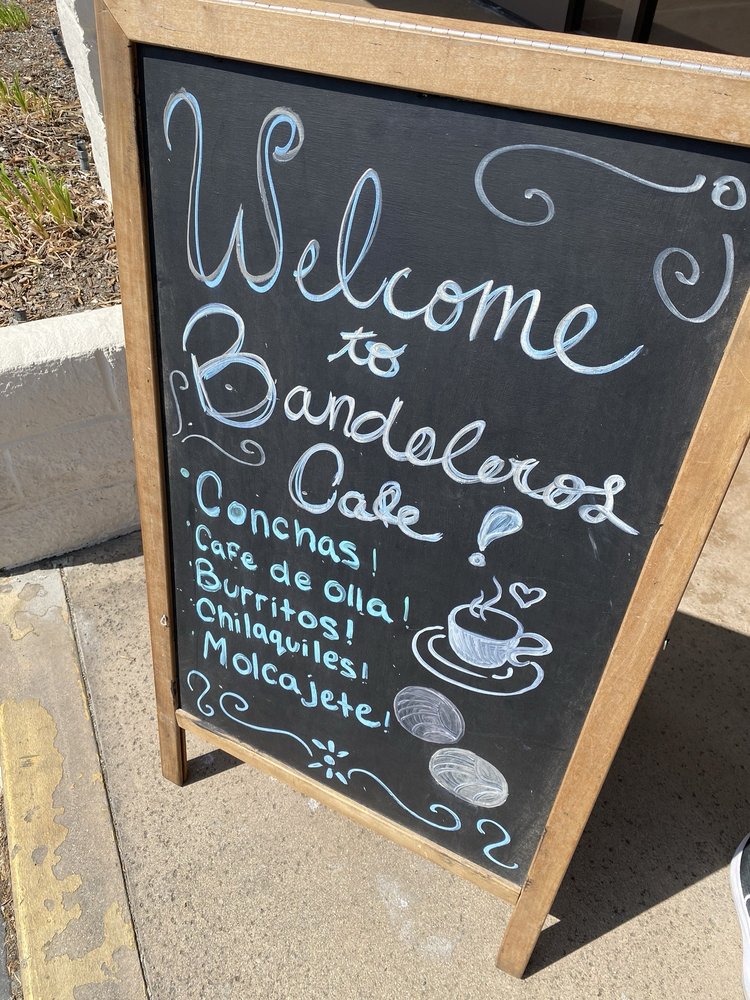 Welcome
to
Bandoleros
Cafe!
Conchas!
Cafe de olla!
Burritos!
Chilaquiles!
Molcajete!